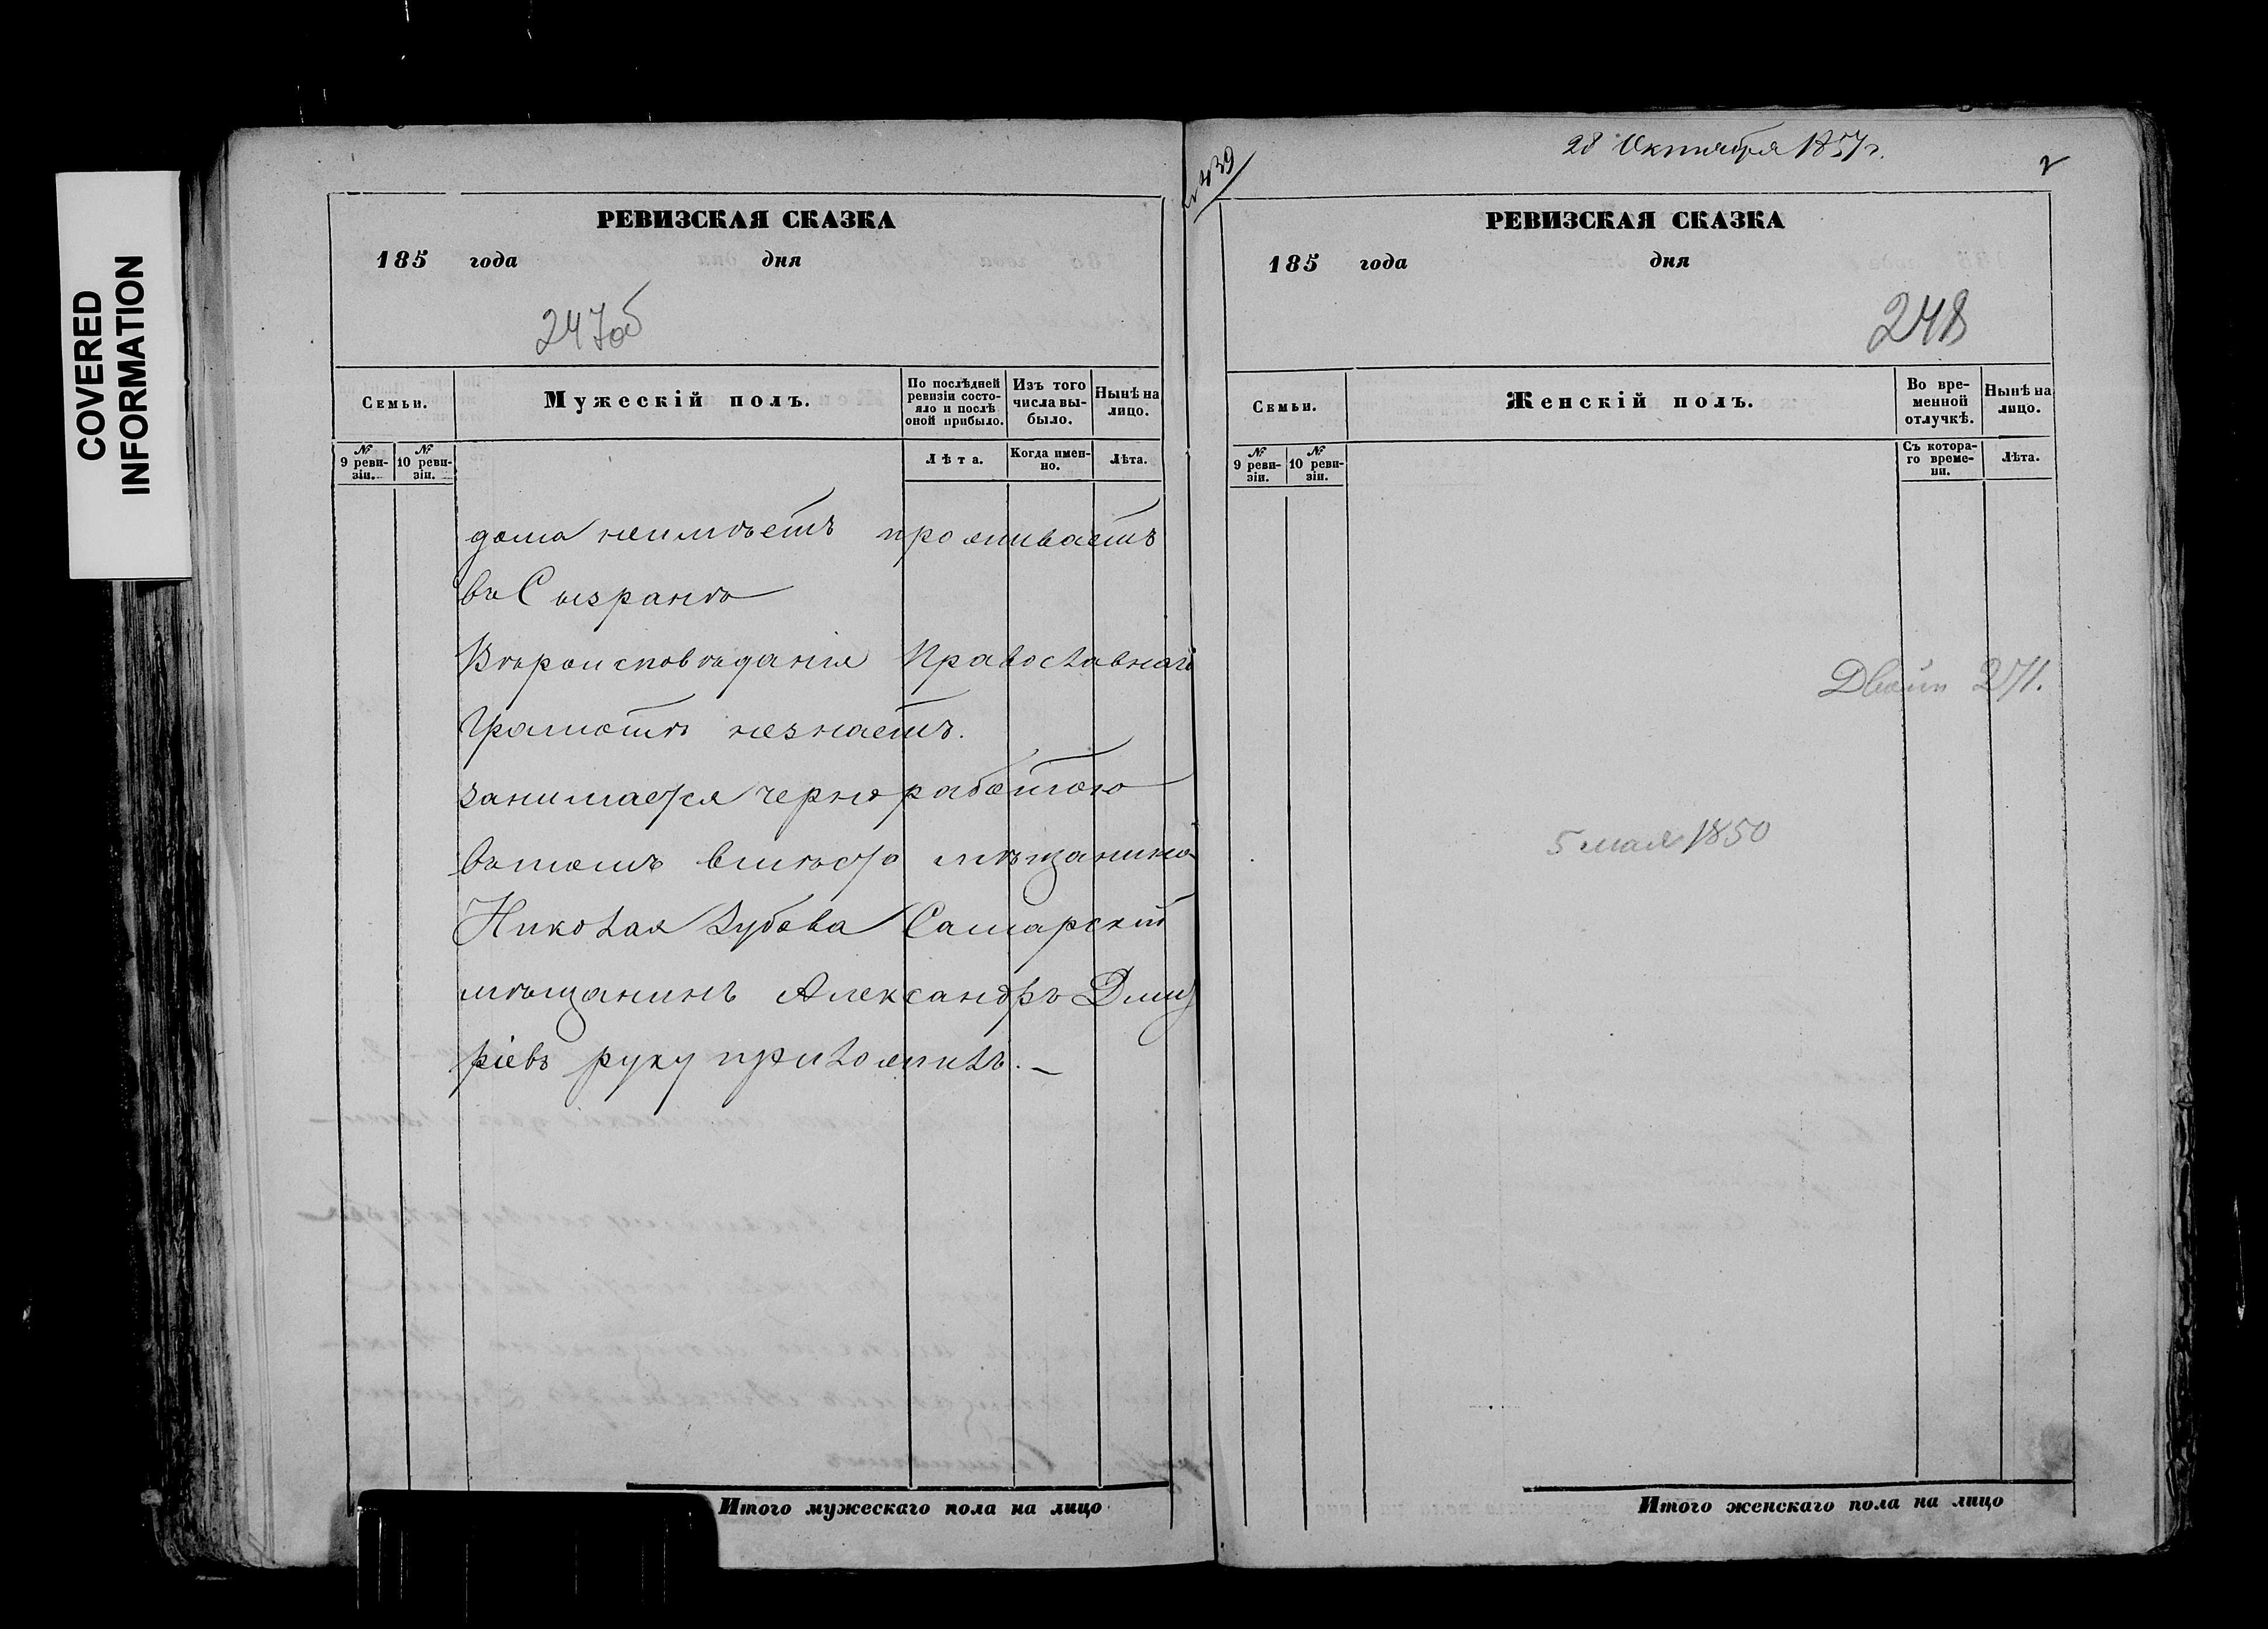 COVERED
INFORMATION
РЕВИЗСКАЯ СКАЗКА
185 года дня
247об
Семьи.
Мужескій полъ.
По послѣдней ревизіи состояло и послѣ оной прибыло.
Изъ того числа выбыло.
Нынѣ на лицо.
№ 9 ревизіи.
№ 10 ревизіи.
Лѣта.
Когда именно.
Лѣта.
дома неимѣетъ проживаетъ
въ Сызранѣ
Вѣроисповѣданія Православнаго
Грамотѣ незнаетъ.
занимается черно работою
вътомъ вмѣсто мѣщанина
Николая Зубова Самарскій
мѣщанинъ Александръ Дмит
ріевъ руку приложилъ. —
Итого мужескаго пола на лицо
439
28 Октября 1857 г.
2
РЕВИЗСКАЯ СКАЗКА
185 года дня
248
Семьи.
Женскій полъ.
Во временной отлучкѣ.
Нынѣ на лицо.
№ 9 ревизіи.
№ 10 ревизіи.
Съ котораго времени.
Лѣта.
5 мая 1850
Итого женскаго пола на лицо